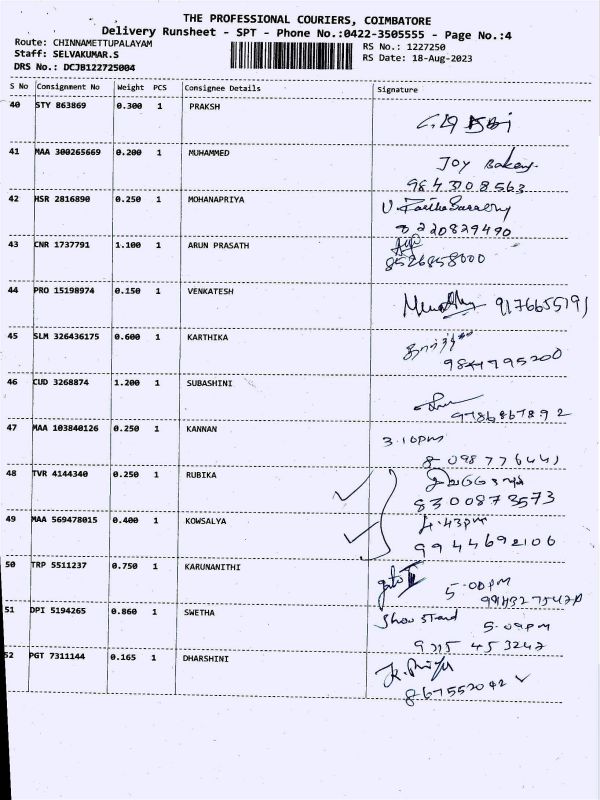 THE PROFESSIONAL COURIERS, COIMBATORE
Delivery Runsheet - SPT - Phone No.:0422-3505555 - Page No.:4
Route: CHINNAMETTUPALAYAM
Staff: SELVAKUMAR.S
DRS No.: DCJB122725004
RS No.: 1227250
RS Date: 18-Aug-2023
S No Consignment No Weight PCS Consignee Details Signature
40 STY 863869 0.300 1 PRAKSH
41 MAA 300265669 0.200 1 MUHAMMED
Joy Bakery.
9843108563
42 HSR 2816890 0.250 1 MOHANAPRIYA
0220829490
43 CNR 1737791 1.100 1 ARUN PRASATH
8526858000
44 PRO 15198974 0.150 1 VENKATESH
9176655191
45 SLM 326436175 0.600 1 KARTHIKA
46 CUD 3268874 1.200 1 SUBASHINI
9786867892
47 MAA 103840126 0.250 1 KANNAN
3.10pm
8098776441
48 TVR 4144340 0.250 1 RUBIKA
8300873573
49 MAA 569478015 0.400 1 KOWSALYA
4.43pm
9944692106
50 TRP 5511237 0.750 1 KARUNANITHI
5.00pm
51 DPI 5194265 0.860 1 SWETHA
5.09pm
52 PGT 7311144 0.165 1 DHARSHINI